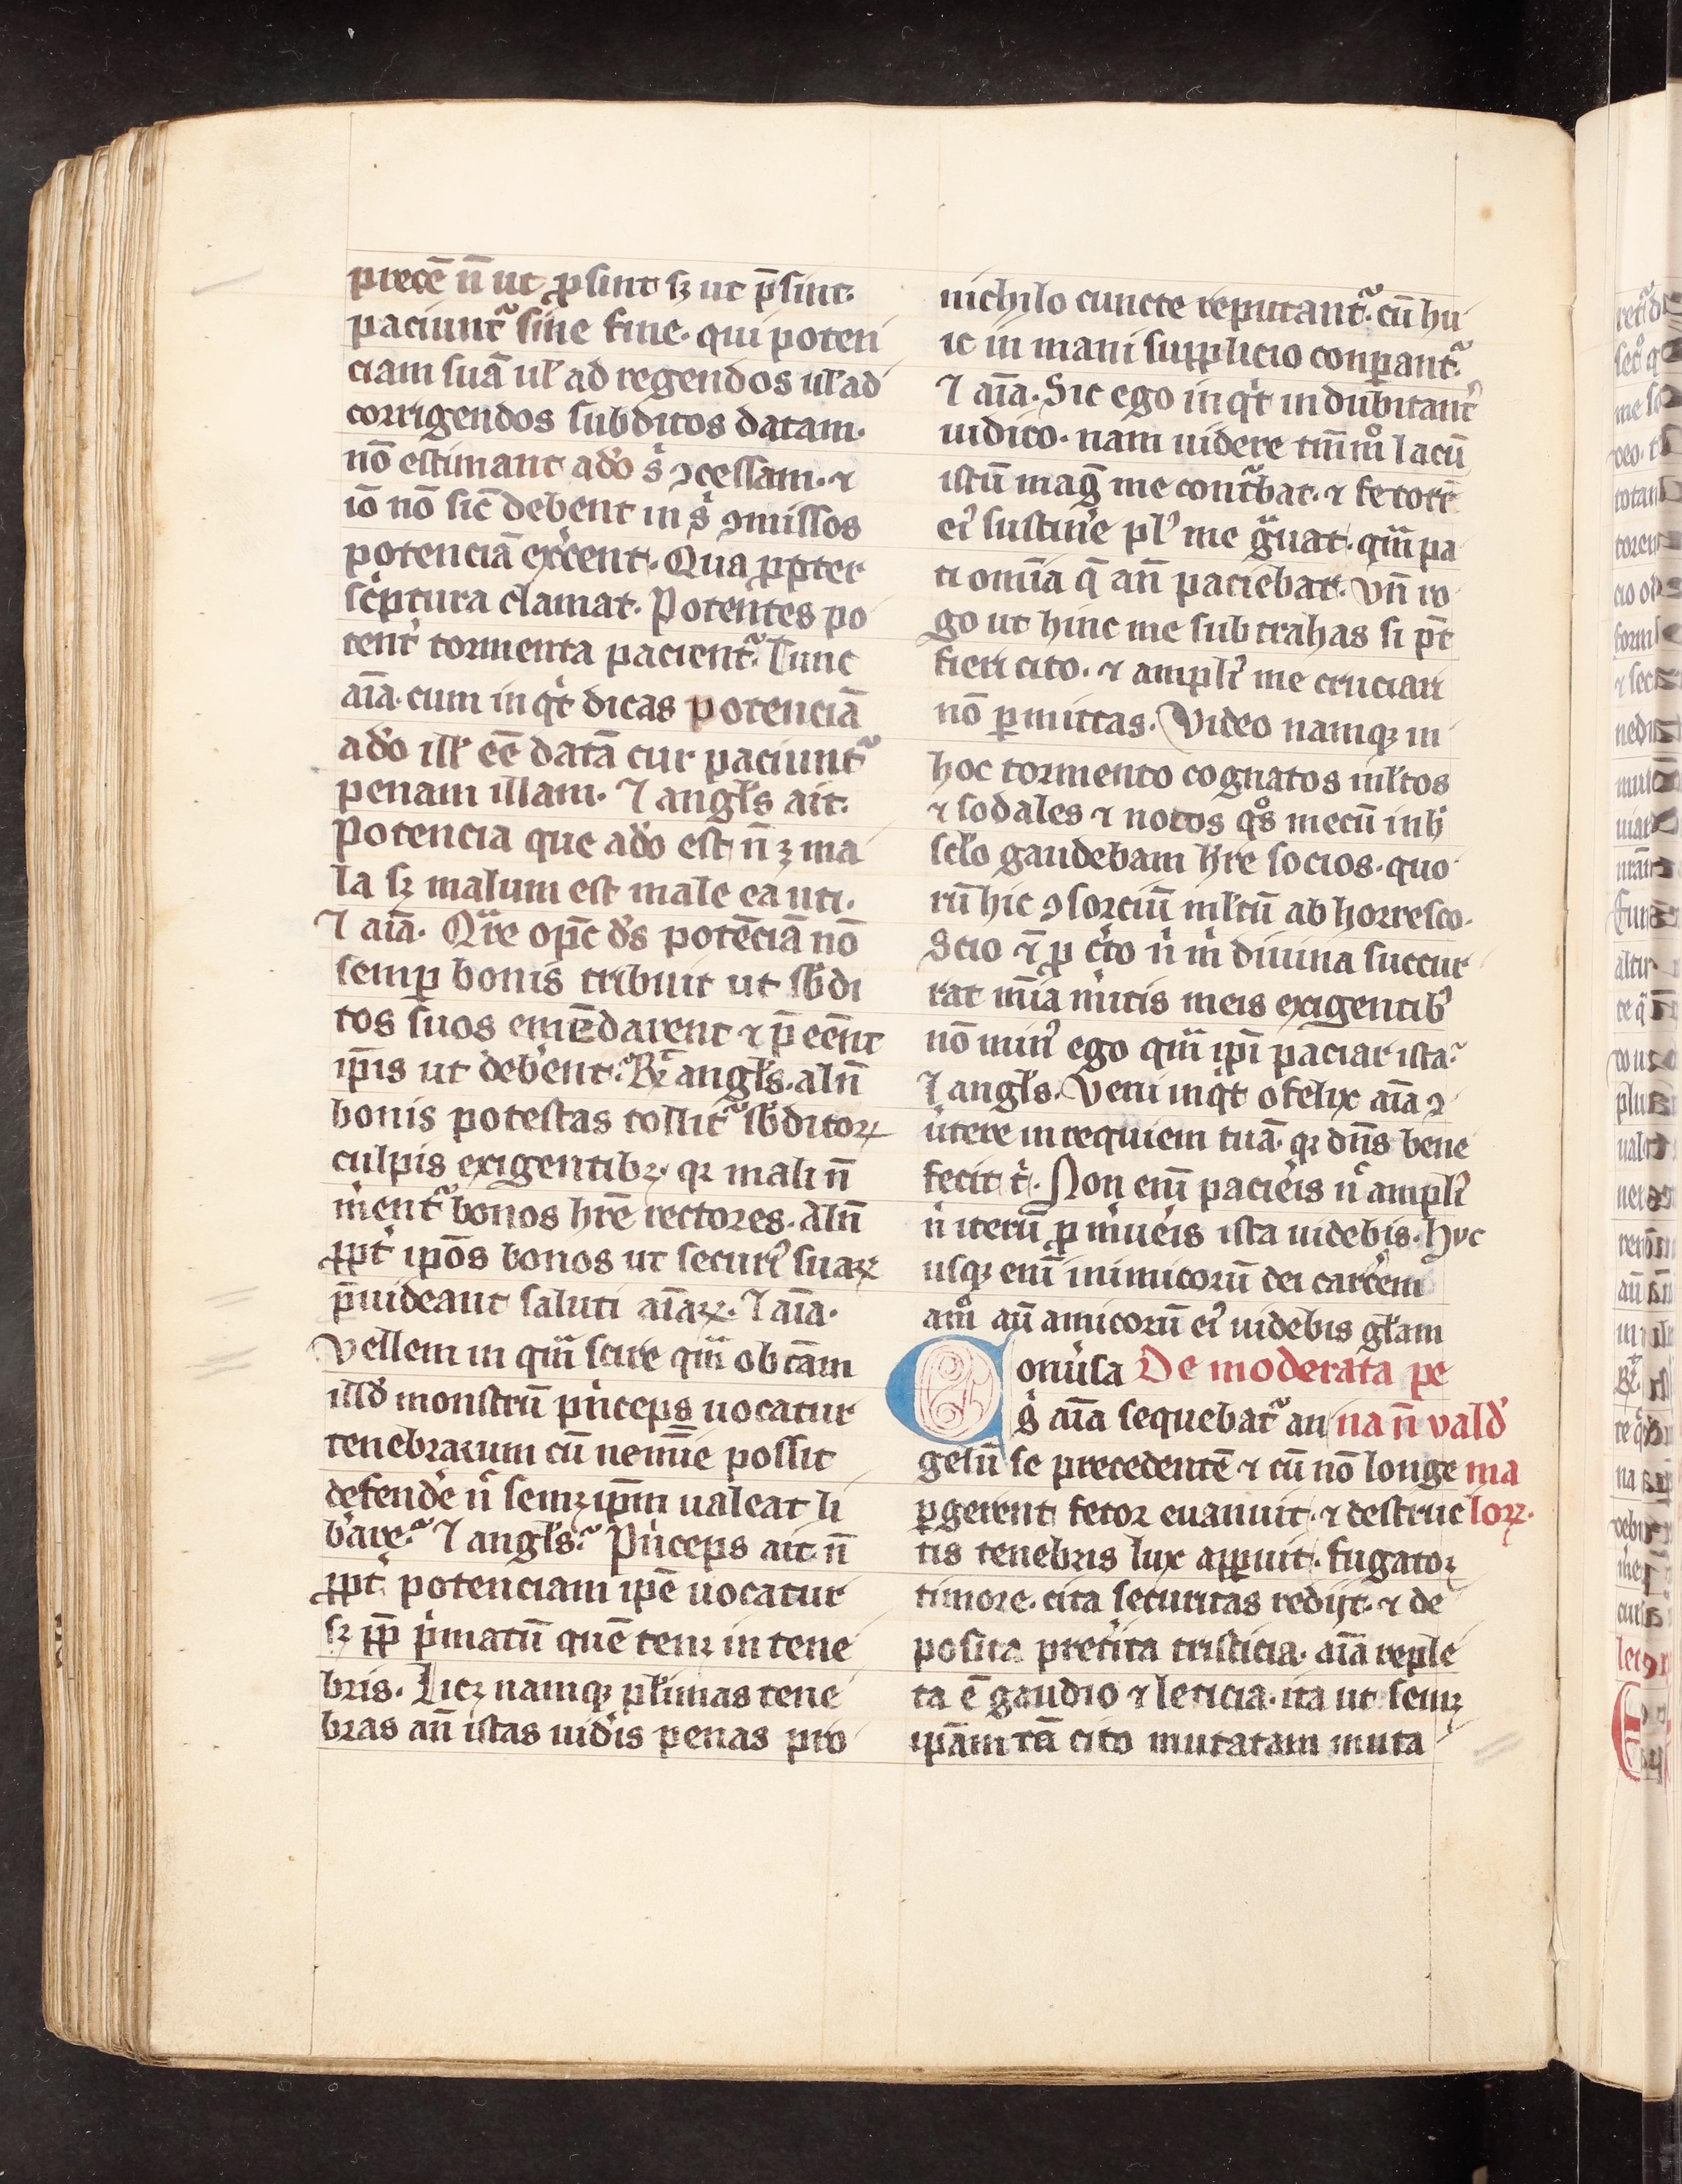 precē n̄ ut ꝓsint sꝫ ut p̄sint.
paciunt᷑ sine fine. qui poten
ciam suā ul̕ ad regendos ul̕ ad
corrigendos subditos datam.
nō estimant ado s̕ ꝯcessam. ⁊
iō nō sic̄ debent in s̕ ꝯmissos
potenciā exc̕ent. Qua ꝓpter
sc̕ptura clamat. Potentes po
tent̕ tormenta pacient᷑. Tunc
aīa. cum inqͥt dicas potenciā
ado ill̕ eē datā cur paciunt᷑
penam illam. ⁊ angl̕s ait.
Potencia que ado est n̄ ꝫ ma
la sꝫ malum est male ea uti.
⁊ aīa. Qͣre op̄c ds̕ potēciā nō
semꝑ bonis tribuit ut sb̕di
tos suos emēdarent ⁊ p̄ eēnt
ip̄is ut deb̕ent. R̄ angl̕s. aln̄
bonis potestas tollit᷑ sb̕ditoꝝ
culpis exigentibꝫ. qꝛ mali n̄
m̕ent᷑ bonos hr̄e rectores. Aln̄
ꝓpt̕ ip̄os bonos ut securiꝰ suaꝝ
p̄uideant saluti aīaꝝ. ⁊ aīa.
Vellem inqͣm scire qͣm ob cām
illd̕ monstrū pͥnceps uocatur
tenebrarum cū nemīe possit
defend̕e nͨ semꝫip̄m ualeat li
b̕are. ⁊ angl̕s. Pͥnceps ait n̄
ꝓpt̕ potenciam ip̄e uocatur
sꝫ ꝓp̄ pͥmatū quē tenꝫ in tene
bris. Licꝫ namqꝫ pl̕imas tene
bras an̄ istas uid̕is penas pro
nichilo cuncte reputant᷑. cū hu
ic in mani supplicio conꝑant᷑
⁊ aīa. Sic ego inqͥt indubitant̕
iudico. nam uidere tm̄mͦ lacū
istū mag̕ me cont᷑bat. ⁊ fetorē
eiꝰ sustin̕e plꝰ me gͣuat. qͣm pa
ti om̄ia q̄ an̄ paciebar. Vn̄ ro
go ut hinc me subtrahas si p̄t
fieri cito. ⁊ ampliꝰ me cruciari
nō ꝑmittas. Video namqꝫ in
hoc tormento cognatos ml̕tos
⁊ sodales ⁊ notos qͦs mecū in h̕
scl̕o gaudebam hr̄e socios. quo
rū hic ꝯsorciū ml̕tū abhorresco.
Scio ⁊̄ ꝓ c̕to nͥ mͥ diuina succur
rat mīa m̕itis meis exigentibꝰ
nō minꝰ ego qͣm ip̄i paciar ista.
⁊ angl̕s. Veni inqͥt o felix aīa ꝛ
u̕tere in requiem tuā. qꝛ dn̄s bene
fecit tͥ. Non enī pacieris nͨ ampliꝰ
nͥ iterū ꝓ m̕ueris ista uidebis. Huc
usqꝫ enī inimicorū dei carc̕em
amͦ aū amicorū eiꝰ uidebis gl̕am
Conu̕sa De moderata pe
gͥ aīa sequebat᷑ an na n̄ vald̕
gelū se precedentē ⁊ cū nō longe ma
ꝑgerent fetor euanuit. ⁊ destruc loꝝ.
tis tenebris lux apparuit. fugatoꝛ
timore. cita securitas redijt. ⁊ de
posita pret̕ita tristicia. aīa reple
ta ē gaudio ⁊ leticia. ita ut semꝫ
ip̄am tā cito mutatam muta